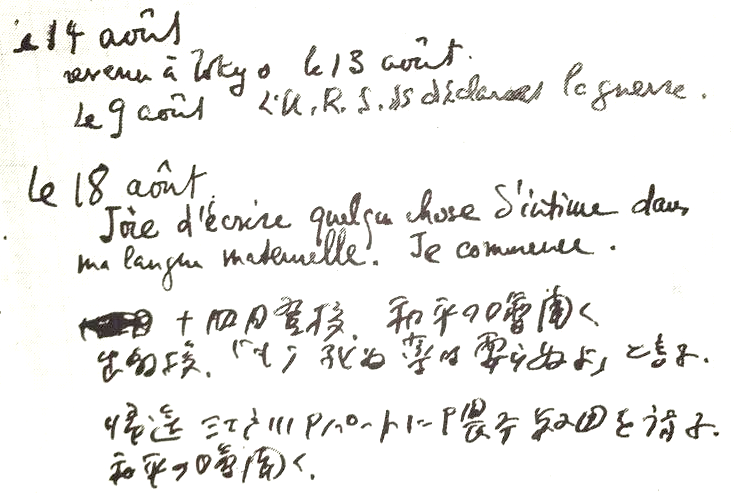 le 14 août
revenu à Tokyo le 13 août.
Le 9 août L'U.R.S.S déclare la guerre.
le 18 août.
Joie d'écrire quelque chose d'intime dans
ma langue maternelle. Je commence.
十四日登校. 和平ノ噂聞く
「もう 薬は要らぬよ」と言ふ.
帰途 江戸川アパートに を訪ふ.
和平ノ噂聞く.